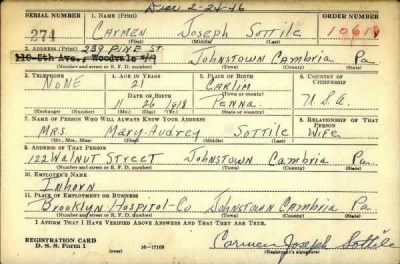 Disc 2-24-46
SERIAL NUMBER 1. NAME (Print) ORDER NUMBER
274 CARMEN JOSEPH SOTTILE 10619
(First) (Middle) (Last)
2. ADDRESS (Print) 239 PINE ST.
110-5th Ave., Woodvale JOHNSTOWN CAMBRIA PA.
(Number and street or R. F. D. number) (Town) (County) (State)
3. TELEPHONE 4. AGE IN YEARS 5. PLACE OF BIRTH 6. COUNTRY OF CITIZENSHIP
NONE 21 CARLIM
DATE OF BIRTH (Town or county)
11 26 1918 PENNA. U.S.A.
(Exchange) (Number) (Mo.) (Day) (Yr.) (State or country)
7. NAME OF PERSON WHO WILL ALWAYS KNOW YOUR ADDRESS 8. RELATIONSHIP OF THAT PERSON
MRS. MARY-AUDREY SOTTILE WIFE
(Mr., Mrs., Miss) (First) (Middle) (Last)
9. ADDRESS OF THAT PERSON
122 WALNUT STREET JOHNSTOWN CAMBRIA PA.
(Number and street or R. F. D. number) (Town) (County) (State)
10. EMPLOYER'S NAME
11. PLACE OF EMPLOYMENT OR BUSINESS
Brooklyn Hospital-Co JOHNSTOWN CAMBRIA PA
(Number and street or R. F. D. number) (Town) (County) (State)
I AFFIRM THAT I HAVE VERIFIED ABOVE ANSWERS AND THAT THEY ARE TRUE.
REGISTRATION CARD
D. S. S. Form 1 16-17105 Carmen Joseph Sottile
(Registrant's signature)